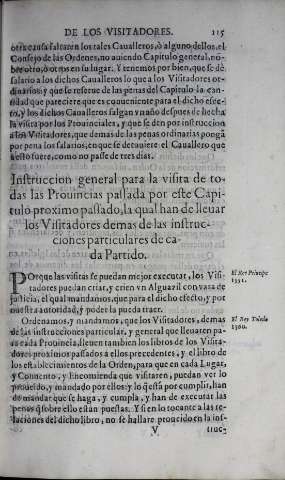 DE LOS VISITADORES. 115
otra causa faltaren los tales Caualleros, ò alguno dellos, el
Consejo de las Ordenes, no auiendo Capitulo general, nō-
bre otro, ò otros en su lugar. Y tenemos por bien, que se dè
salario a los dichos Caualleros lo que a los Visitadores or-
dinarios: y que se reserue de las penas del Capitulo la can-
tidad que pareciere que es conueniente para el dicho efec-
to, y los dichos Caualleros salgan vn año despues de hecha
la visita por los Prouinciales, y que se den por instruccion
a los Visitadores, que demas de las penas ordinarias pongā
por pena los salarios, en que se detuuiere el Cauallero que
a esto fuere, como no passe de tres dias.
Instruccion general para la visita de to-
das las Prouincias passada por este Capi-
tulo proximo passado, la qual han de lleuar
los Visitadores demas de las instruc-
ciones particulares de ca-
da Partido.
POrque las visitas se puedan mejor executar, los Visi-
tadores puedan criar, y crien vn Alguazil con vara de
justicia, el qual mandamos, que para el dicho efecto, y por
nuestra autoridad, y poder la pueda traer.
El Rey Principe
1551.
Ordenamos, y mandamos, que los Visitadores, demas
de las instrucciones particular, y general que lleuaren pa-
ra cada Prouincia, lleuen tambien los libros de los Visita-
dores proximos passados a ellos precedentes, y el libro de
los establecimientos de la Orden, para que en cada Lugar,
y Conuento, y Encomienda que visitaren, puedan ver lo
proueido, y mandado por ellos: y lo q̄ està por cumplir, han
de mandar que se haga, y cumpla, y han de executar las
penas q̄ sobre ello estàn puestas. Y si en lo tocante a las re-
laciones del dicho libro, no se hallare proueido en la ins-
El Rey Toledo
1560.
V truc-